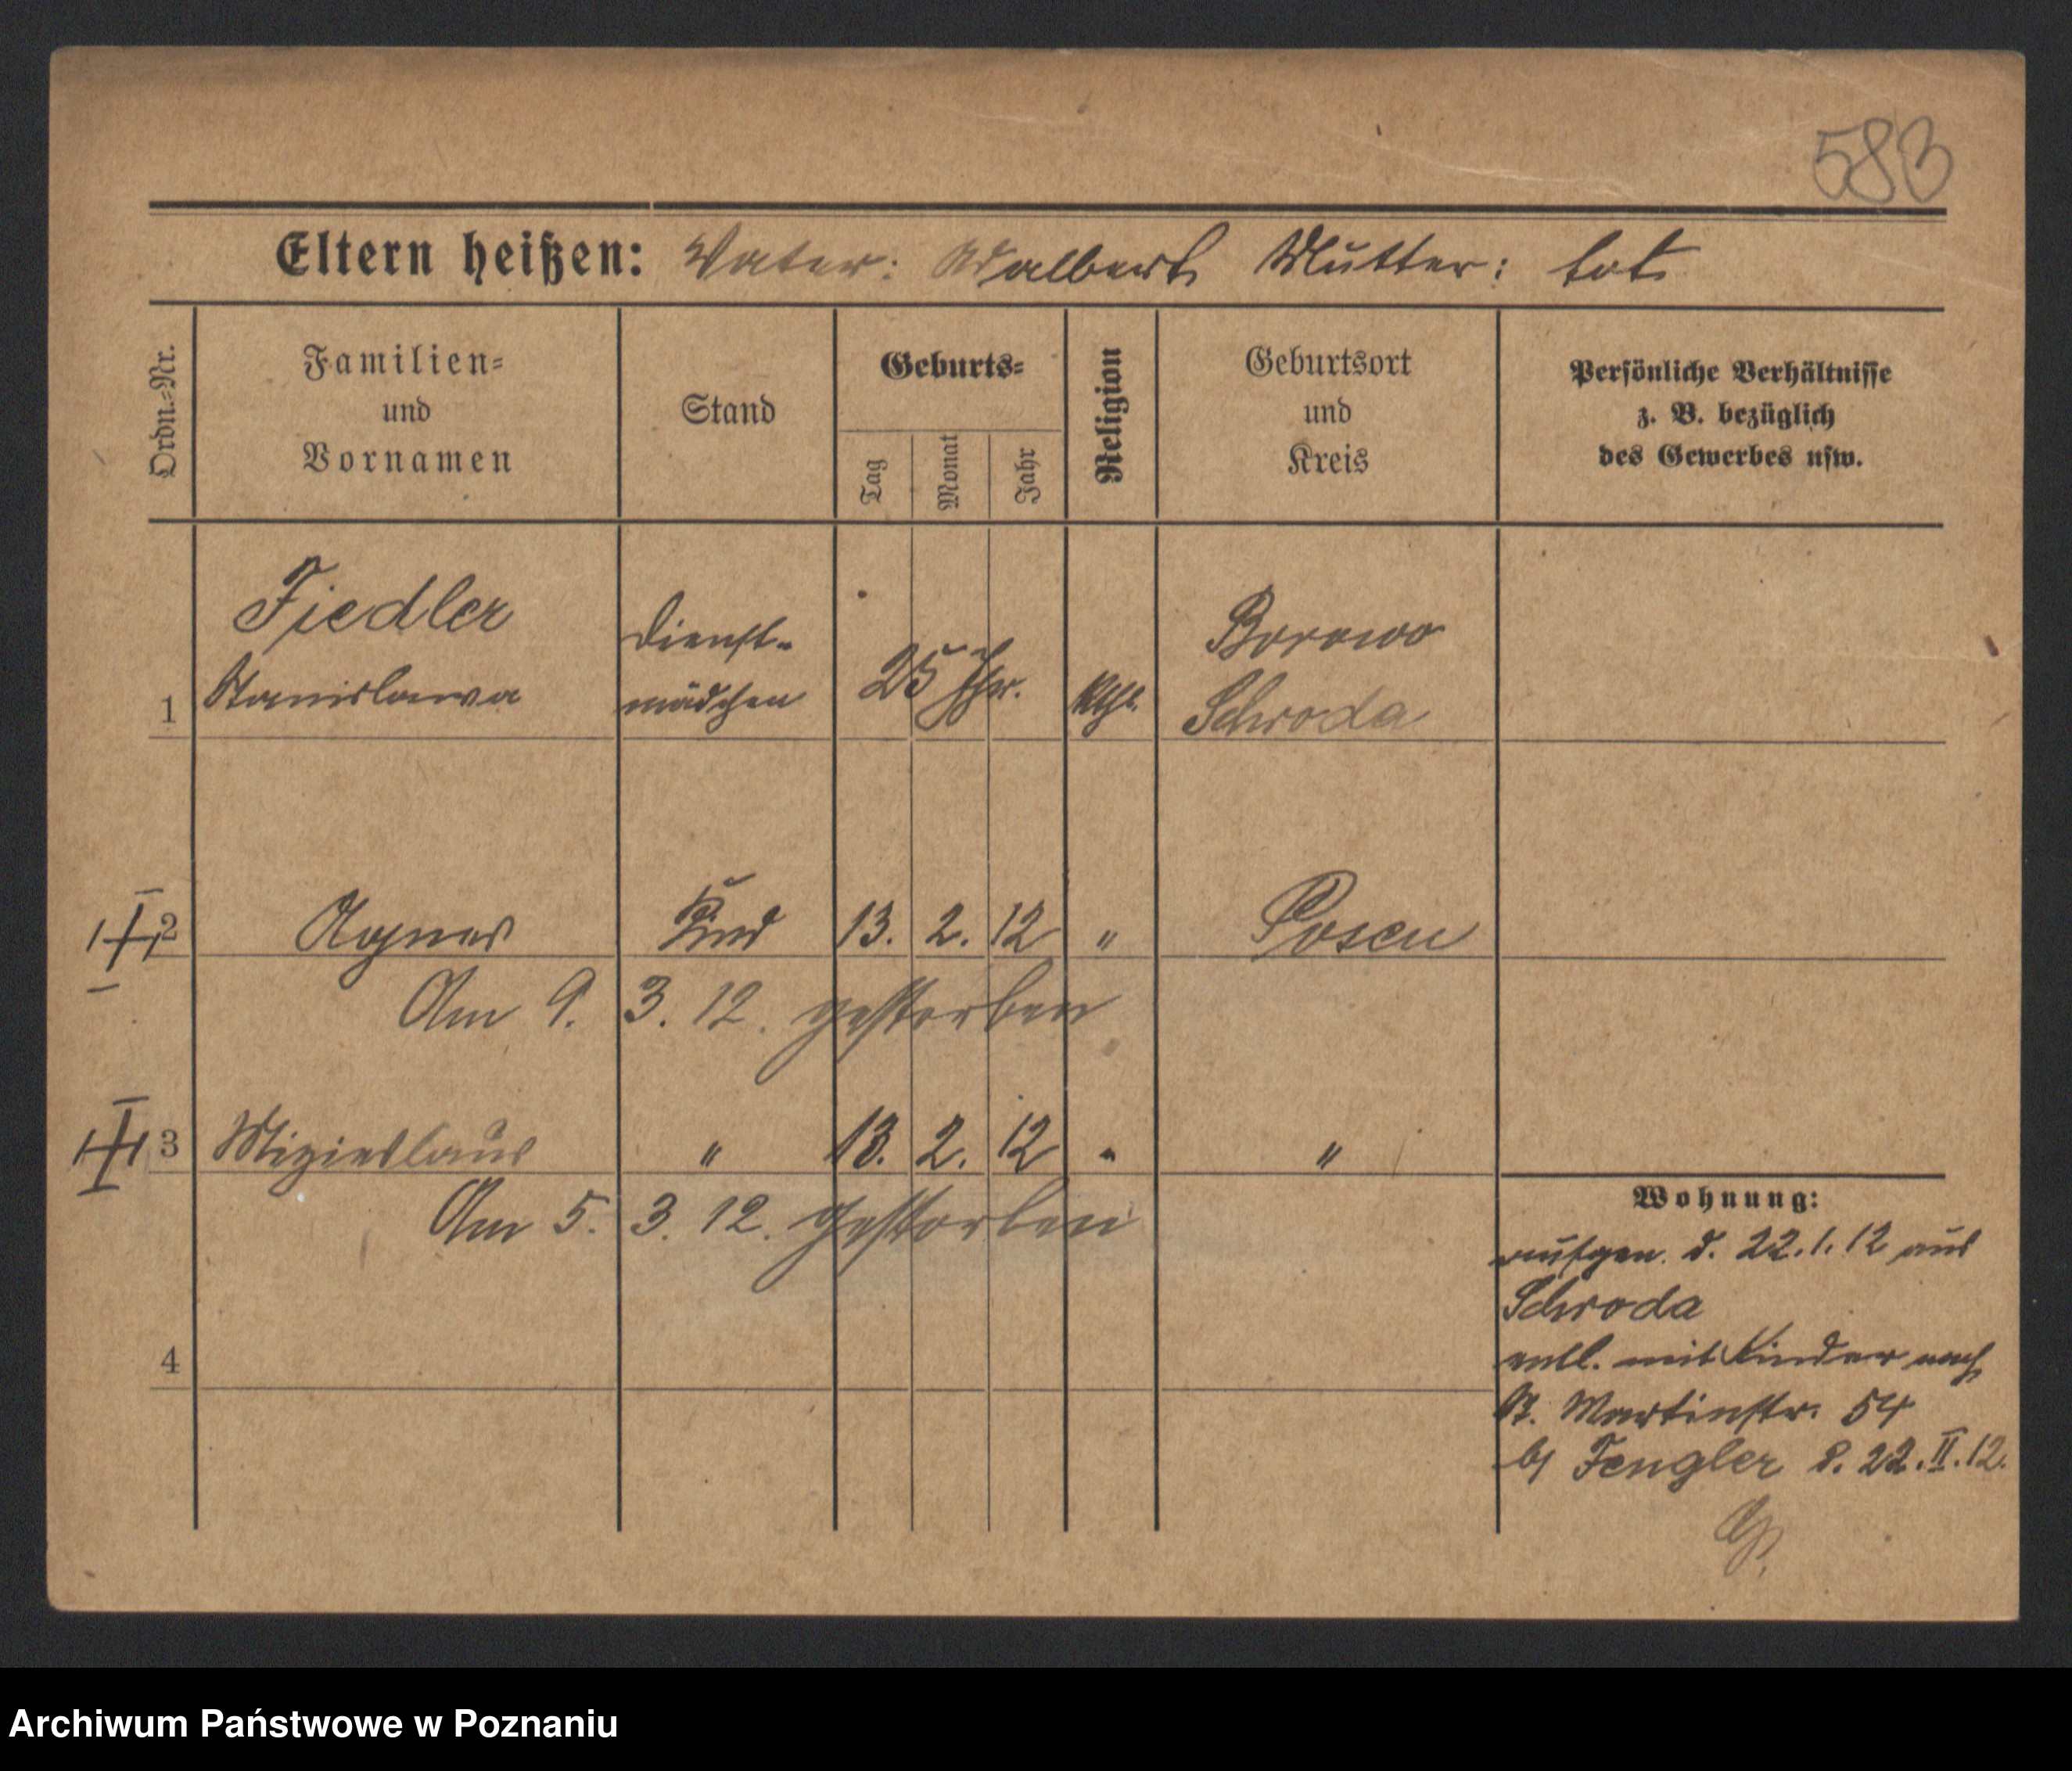 583
Eltern heißen: Vater: Adalbert Mutter: tot
Ordn.-Nr.
Familien-
und
Vornamen
Stand
Geburts-
Tag
Monat
Jahr
Religion
Geburtsort
und
Kreis
Persönliche Verhältnisse
z. B. bezüglich
des Gewerbes usw.
1
Fiedler
Stanislawa
Dienst-
mädchen
25 Jhr.
Kth.
Borowo
Schroda
2 Agnes Kind 13. 2. 12 " Posen
Am 9. 3. 12. gestorben
3 Mizieslaus " 13. 2. 12 " "
Am 5. 3. 12. gestorben
4
Wohnung:
aufgen. d. 22.1.12 aus
Schroda
entl. mit Kinder nach
St. Martinstr. 54
b/ Fengler d. 22.II.12.
Archiwum Państwowe w Poznaniu